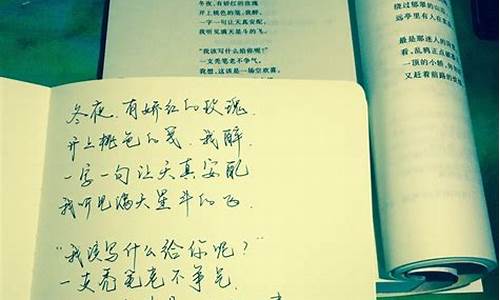 冬夜,有娇红的玫瑰
开上桃色的笺,我醉,
一字一句让天真安配,
我听见满天星斗的飞。
“我该写什么给你呢?”
一支秃笔老不争气,
我想,这该是一场空欢喜,
绕过郁翠的山
远亭里有人在
最是那迷人的
看,乱鸦正点
一顶的小轿,
又赶着前路的
冬夜,有娇红的玫瑰,
开上桃色的笺,我醉,
一字一句让天真安配
我听见满天星斗的飞.
“我该写什么给你呢?”
一支秃笔老不争气.